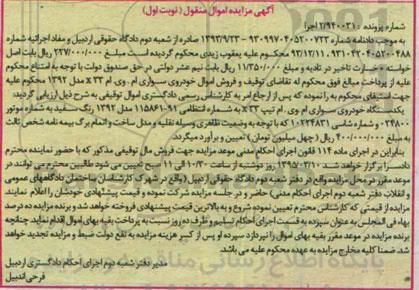 آگهی مزایده اموال منقول (نوبت اول)
شماره پرونده : ۲/۹۴۰۰۳۱ اجرا
به موجب دادنامه شماره ۹۳۰۹۹۷۰۴۰۵۲۰۰۷۲۲ - ۹۳/۹/۲۳ صادره از شعبه دوم دادگاه حقوقی اردبیل و مفاد اجرائیه شماره
۹۳/۱۲/۱۱ محکوم علیه یعقوب زیدی محکوم گردیده است مبلغ ۲۲۷/۰۰۰/۰۰۰ ریال بابت اصل
خواسته و خسارت تاخیر در تادیه و مبلغ ۱۱/۳۵۰/۰۰۰ ریال بابت نیم عشر دولتی در حق صندوق دولت با توجه به امتناع محکوم
علیه از پرداخت مبالغ فوق محکوم له تقاضای توقیف و فروش اموال خودروی سواری ام . وی . ام X۳۳ مدل ۱۳۹۲ محکوم علیه
جهت استیفای محکوم به را نموده که پس از ارجاع امر به کارشناس رسمی دادگستری اموال توقیفی به شرح ذیل ارزیابی گردید
دستگاه خودروی سواری ام وی ام تیپ X۳۳ به شماره انتظامی ۹۱-۱۱۵۸۶۱ مدل ۱۳۹۲ رنگ سفید به شماره موتور
۰۲۴۸۰۰ و شماره شاسی ۱۰۲۲۴۸۳۱ که با توجه به وضعیت ظاهری وسیله نقلیه و مدل ساخت و اتمام برگ بیمه نامه شخص ثالث
به مبلغ ۴۰۰/۰۰۰/۰۰۰ ریال ( چهل میلیون تومان ) تعیین و برآورد میگردد.
بنابراین در اجرای ماده ۱۱۴ قانون اجرای احکام مدنی موعد مزایده جهت فروش مال توقیفی مذکور که با حضور نماینده محترم
دادسرا برگزار خواهد شد ۱۳۹۵/۳/۱۰ روز دوشنبه از ساعت ۱۰/۳۰ الی ۱۱ صبح تعیین می شود طالبین محترم می توانند در
موعد مقرر در محل مزایده واقع در دفتر شعبه دوم دادگاه حقوقی اردبیل (واقع در شهرک کارشناسان ساختمان دادگاههای عمومی
و انقلاب دفتر شعبه دوم اجرای احکام مدنی) حاضر و در جلسه مزایده شرکت نموده و قیمت پیشنهادی خودشان را اعلام نمایند
مزایده از قیمتی که کارشناس محترم تعیین نموده شروع و به بالاترین قیمت پیشنهادی فروخته خواهد شد و برنده مزایده ده درصد
بهاء فی المجلس به عنوان سپرده به قسمت اجرای احکام تسلیم و ظرف ده روز نسبت به پرداخت بقیه بهای اموال اقدام نماید چنانچه
برنده مزایده در موعد مقرر بقیه بهای اموال را نپردازد سپرده او پس از کسر هزینه مزایده به نفع دولت ضبط و مزایده تجدید خواهد
شد. ضمنا کلیه مخارج مزایده به عهده محکوم علیه می باشد.
مدیر دفتر شعبه دوم اجرای احکام دادگستری اردبیل
فرحی اندبیل